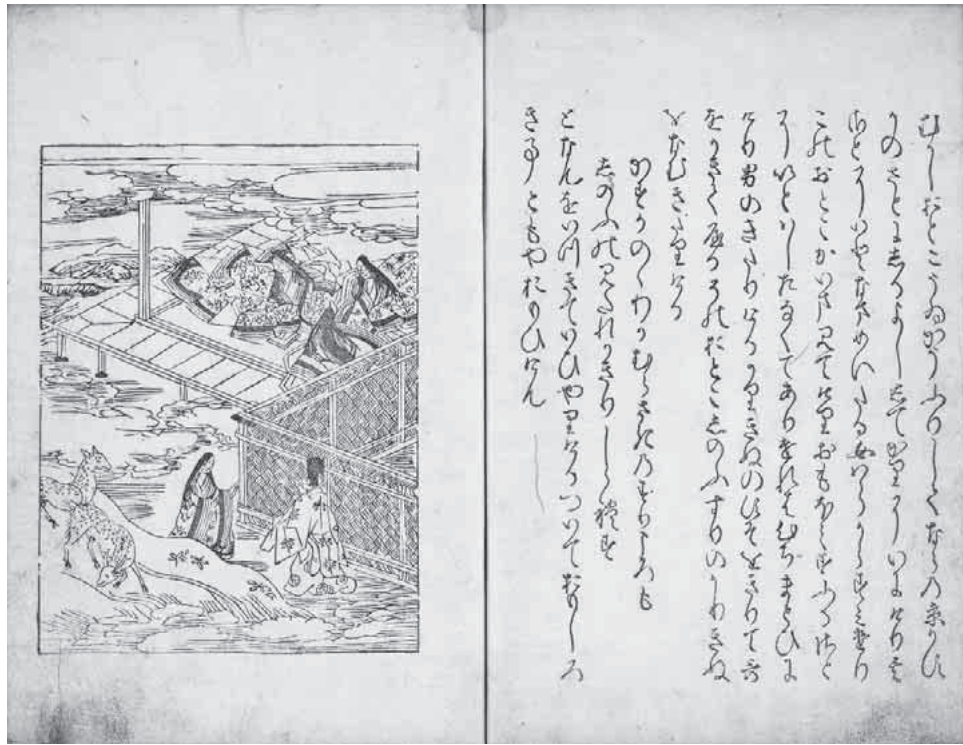 むかしおとこうゐかうふりしてならの京かす
かのさとにしるよしゝてかりにいにけりそ
のさとにいとなまめいたる女はらからすみけり
このおとこかいまみてけりおもほえすふるさと
にいとはしたなくてありけれは心ちまとひに
けり男のきたりけるかりきぬのすそをきりて哥
をかきてやるそのおとこしのふすりのかりきぬ
をなむきたりける
かすかのゝわかむらさきのすりころも
しのふのみたれかきりしられす
となんをいつきていひやりけるついておもしろ
き事ともやおもひけん